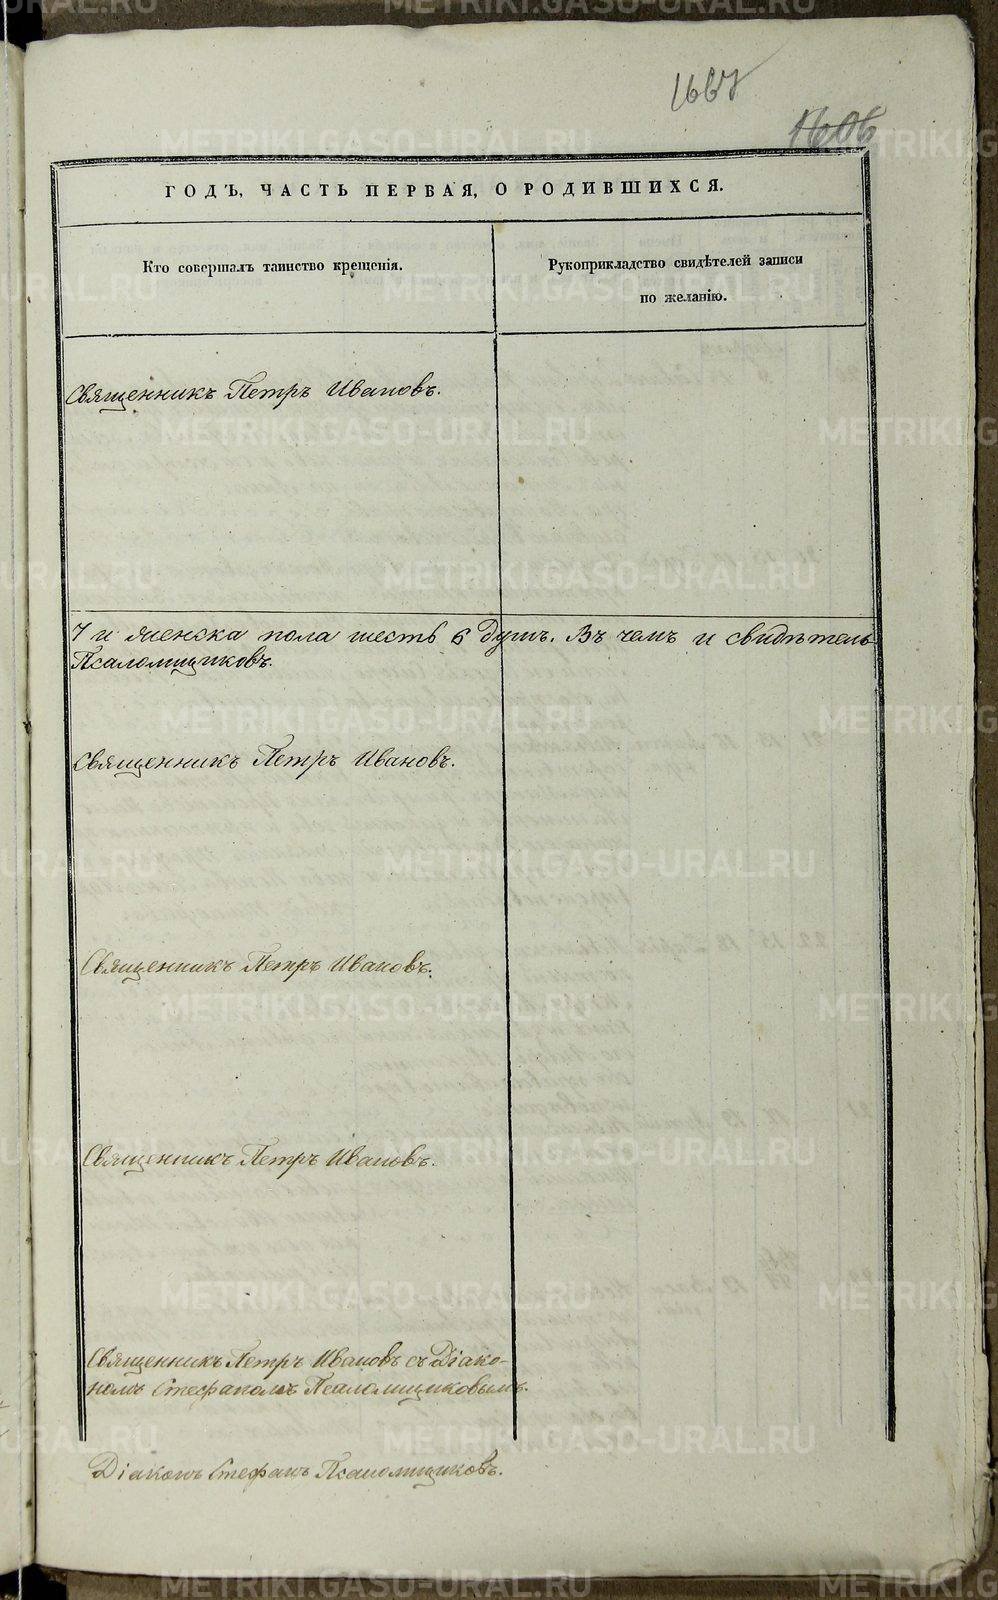 1667
1606
ГОДЪ, ЧАСТЬ ПЕРВАЯ, О РОДИВШИХСЯ.
Кто совершалъ таинство крещенія.
Рукоприкладство свидѣтелей записи
по желанію.
Священникъ Петръ Ивановъ.
7 и женска пола шесть 6 душъ. Въ чемъ и свидѣтель
Псаломщиковъ.
Священникъ Петръ Ивановъ.
Священникъ Петръ Ивановъ.
Священникъ Петръ Ивановъ.
Священникъ Петръ Ивановъ съ Діако-
номъ Стефаномъ Псаломщиковымъ.
Діаконъ Стефанъ Псаломщиковъ.
METRIKI.GASO-URAL.RU